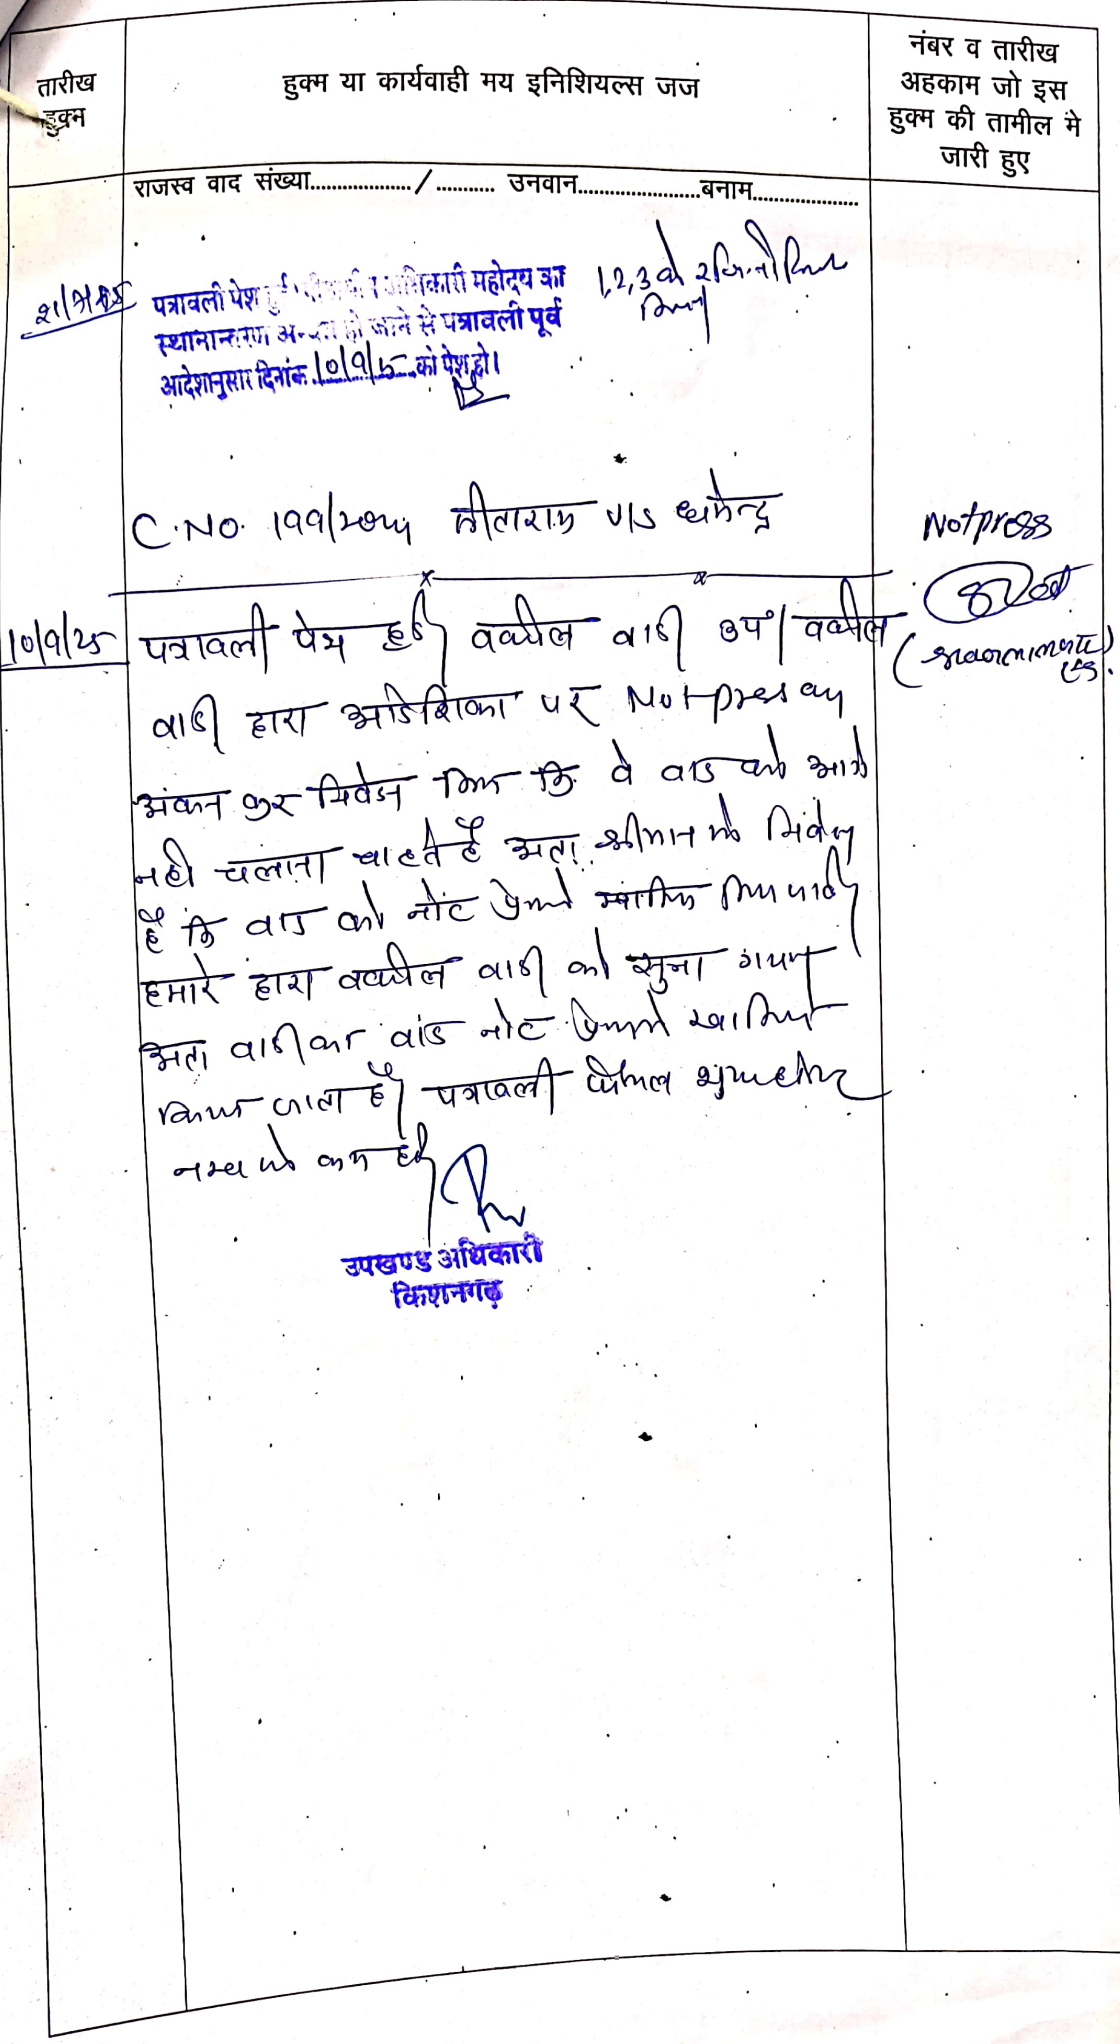 तारीख
हुक्म
हुक्म या कार्यवाही मय इनिशियल्स जज
नंबर व तारीख
अहकाम जो इस
हुक्म की तामील मे
जारी हुए
राजस्व वाद संख्या.................. / ........... उनवान......................बनाम....................
1,2,3 को
पत्रावली पेश अधिकारी महोदय का
स्थानान्तरण हो जाने से पत्रावली पूर्व
आदेशानुसार दिनांक 10/9/25 को पेश हो।
C.No. 199/2024 सीताराम v/s धर्मेन्द्र
Notpress
10/9/25 पत्रावली पेश हुई वकील वादी उप। वकील
वादी द्वारा आदेशिका पर Notpress
अंकन कर निवेदन किया कि वे वाद को आगे
नही चलाना चाहते है अतः श्रीमान से निवेदन
है कि वाद को नोट प्रेस मे खारिज किया जावे
हमारे द्वारा वकील वादी को सुना गया
अतः वादी का वाद नोट प्रेस मे खारिज
किया जाता है पत्रावली फैसल शुमार होकर
नम्बर से कम हुई
उपखण्ड अधिकारी
किशनगढ़